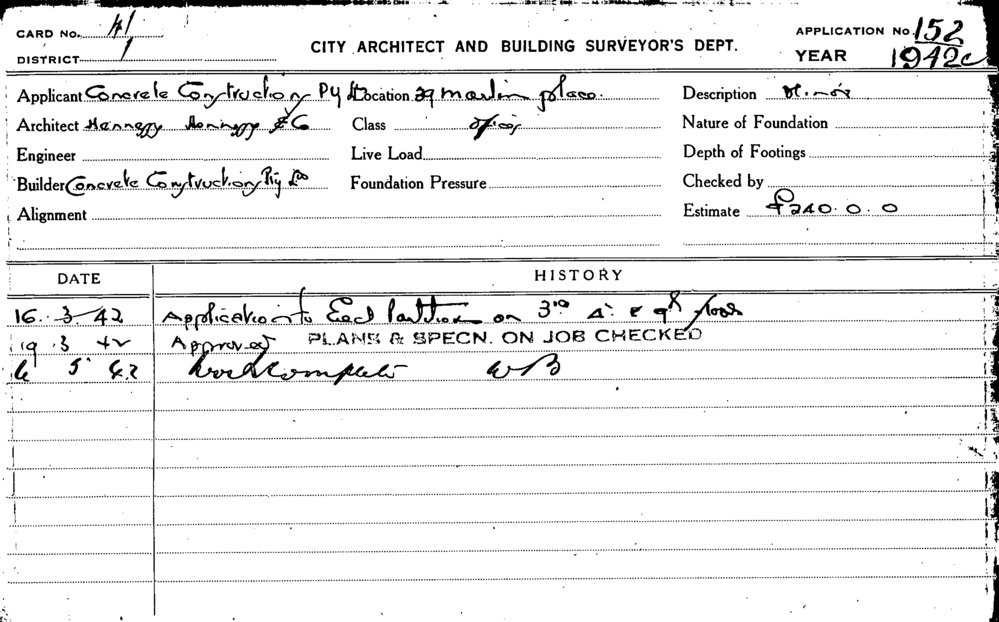 CARD No. 41
APPLICATION No. 152
CITY ARCHITECT AND BUILDING SURVEYOR'S DEPT.
DISTRICT 1
YEAR 1942
Applicant Concrete Construction Pty Ltd Location 29 Martin place.
Description
Architect Hennessy Hennessy & Co Class offices
Nature of Foundation
Engineer
Live Load
Depth of Footings
Builder Concrete Construction Pty Ltd Foundation Pressure
Checked by
Alignment
Estimate £240.0.0
DATE HISTORY
16. 3 42 Application to Erect Partition on 3rd 4th & 9th floors
19 3 42 Approved PLANS & SPECN. ON JOB CHECKED
6 5 42 Work Complete WB